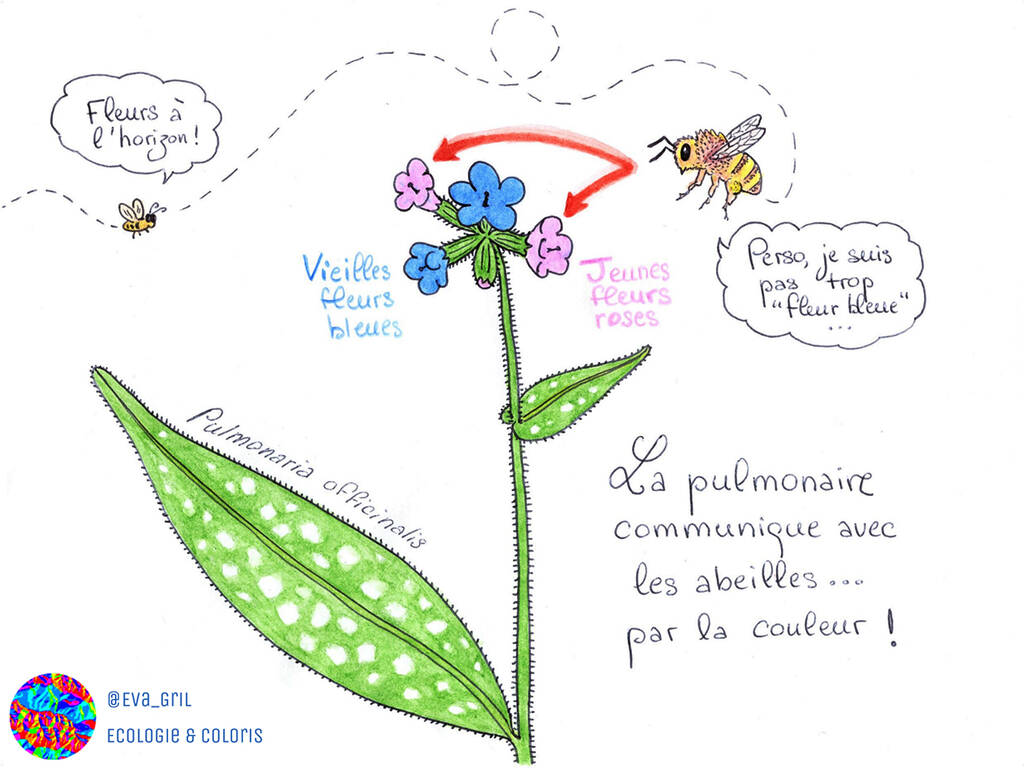 Fleurs à
l'horizon !
Vieilles
fleurs
bleues
Jeunes
fleurs
roses
Perso, je suis
pas trop
"fleur bleue"
...
Pulmonaria officinalis
La pulmonaire
communique avec
les abeilles...
par la couleur !
@Eva_Gril
Ecologie & Coloris